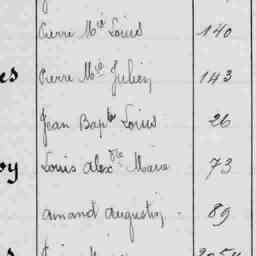 Pierre Mie Louis 140
es Pierre Mie Julien 143
Jean Bapte Louis 26
oy Louis Alexdre Marie 73
Amand Augustin 89